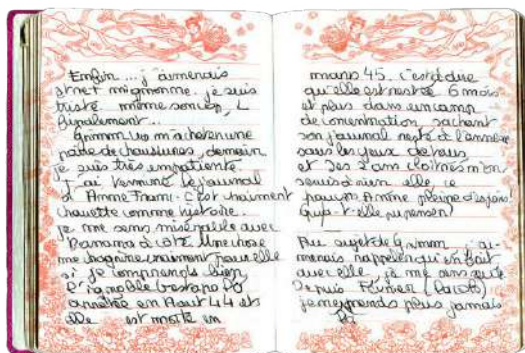 Enfin ... j'aimerais
être mignonne. je suis
triste même son
finalement...
Grimm va m'acheter une
paire de chaussures, demain
je suis très impatiente
J'ai terminé le journal
d'Anne Frank. C'est vraiment
chouette comme histoire.
je me sens misérable avec
Panama à côté. Une chose
me chagrine vraiment pour elle
si je comprends bien
l'ignoble Gestapo l'a
arrêtée en Août 44 et
elle est morte en
mars 45. c'est à dire
qu'elle est restée 6 mois
et plus dans un camp
de concentration sachant
son journal resté à l'annexe
sous les yeux de tous
et ses 2 ans cloîtrés n'ont
servis à rien elle
pauvre Anne pleine d'espoirs!
Qu'a-t-elle pu penser?
Au sujet de Grimm j'ai
avec elle, je me
Depuis Février
plus jamais